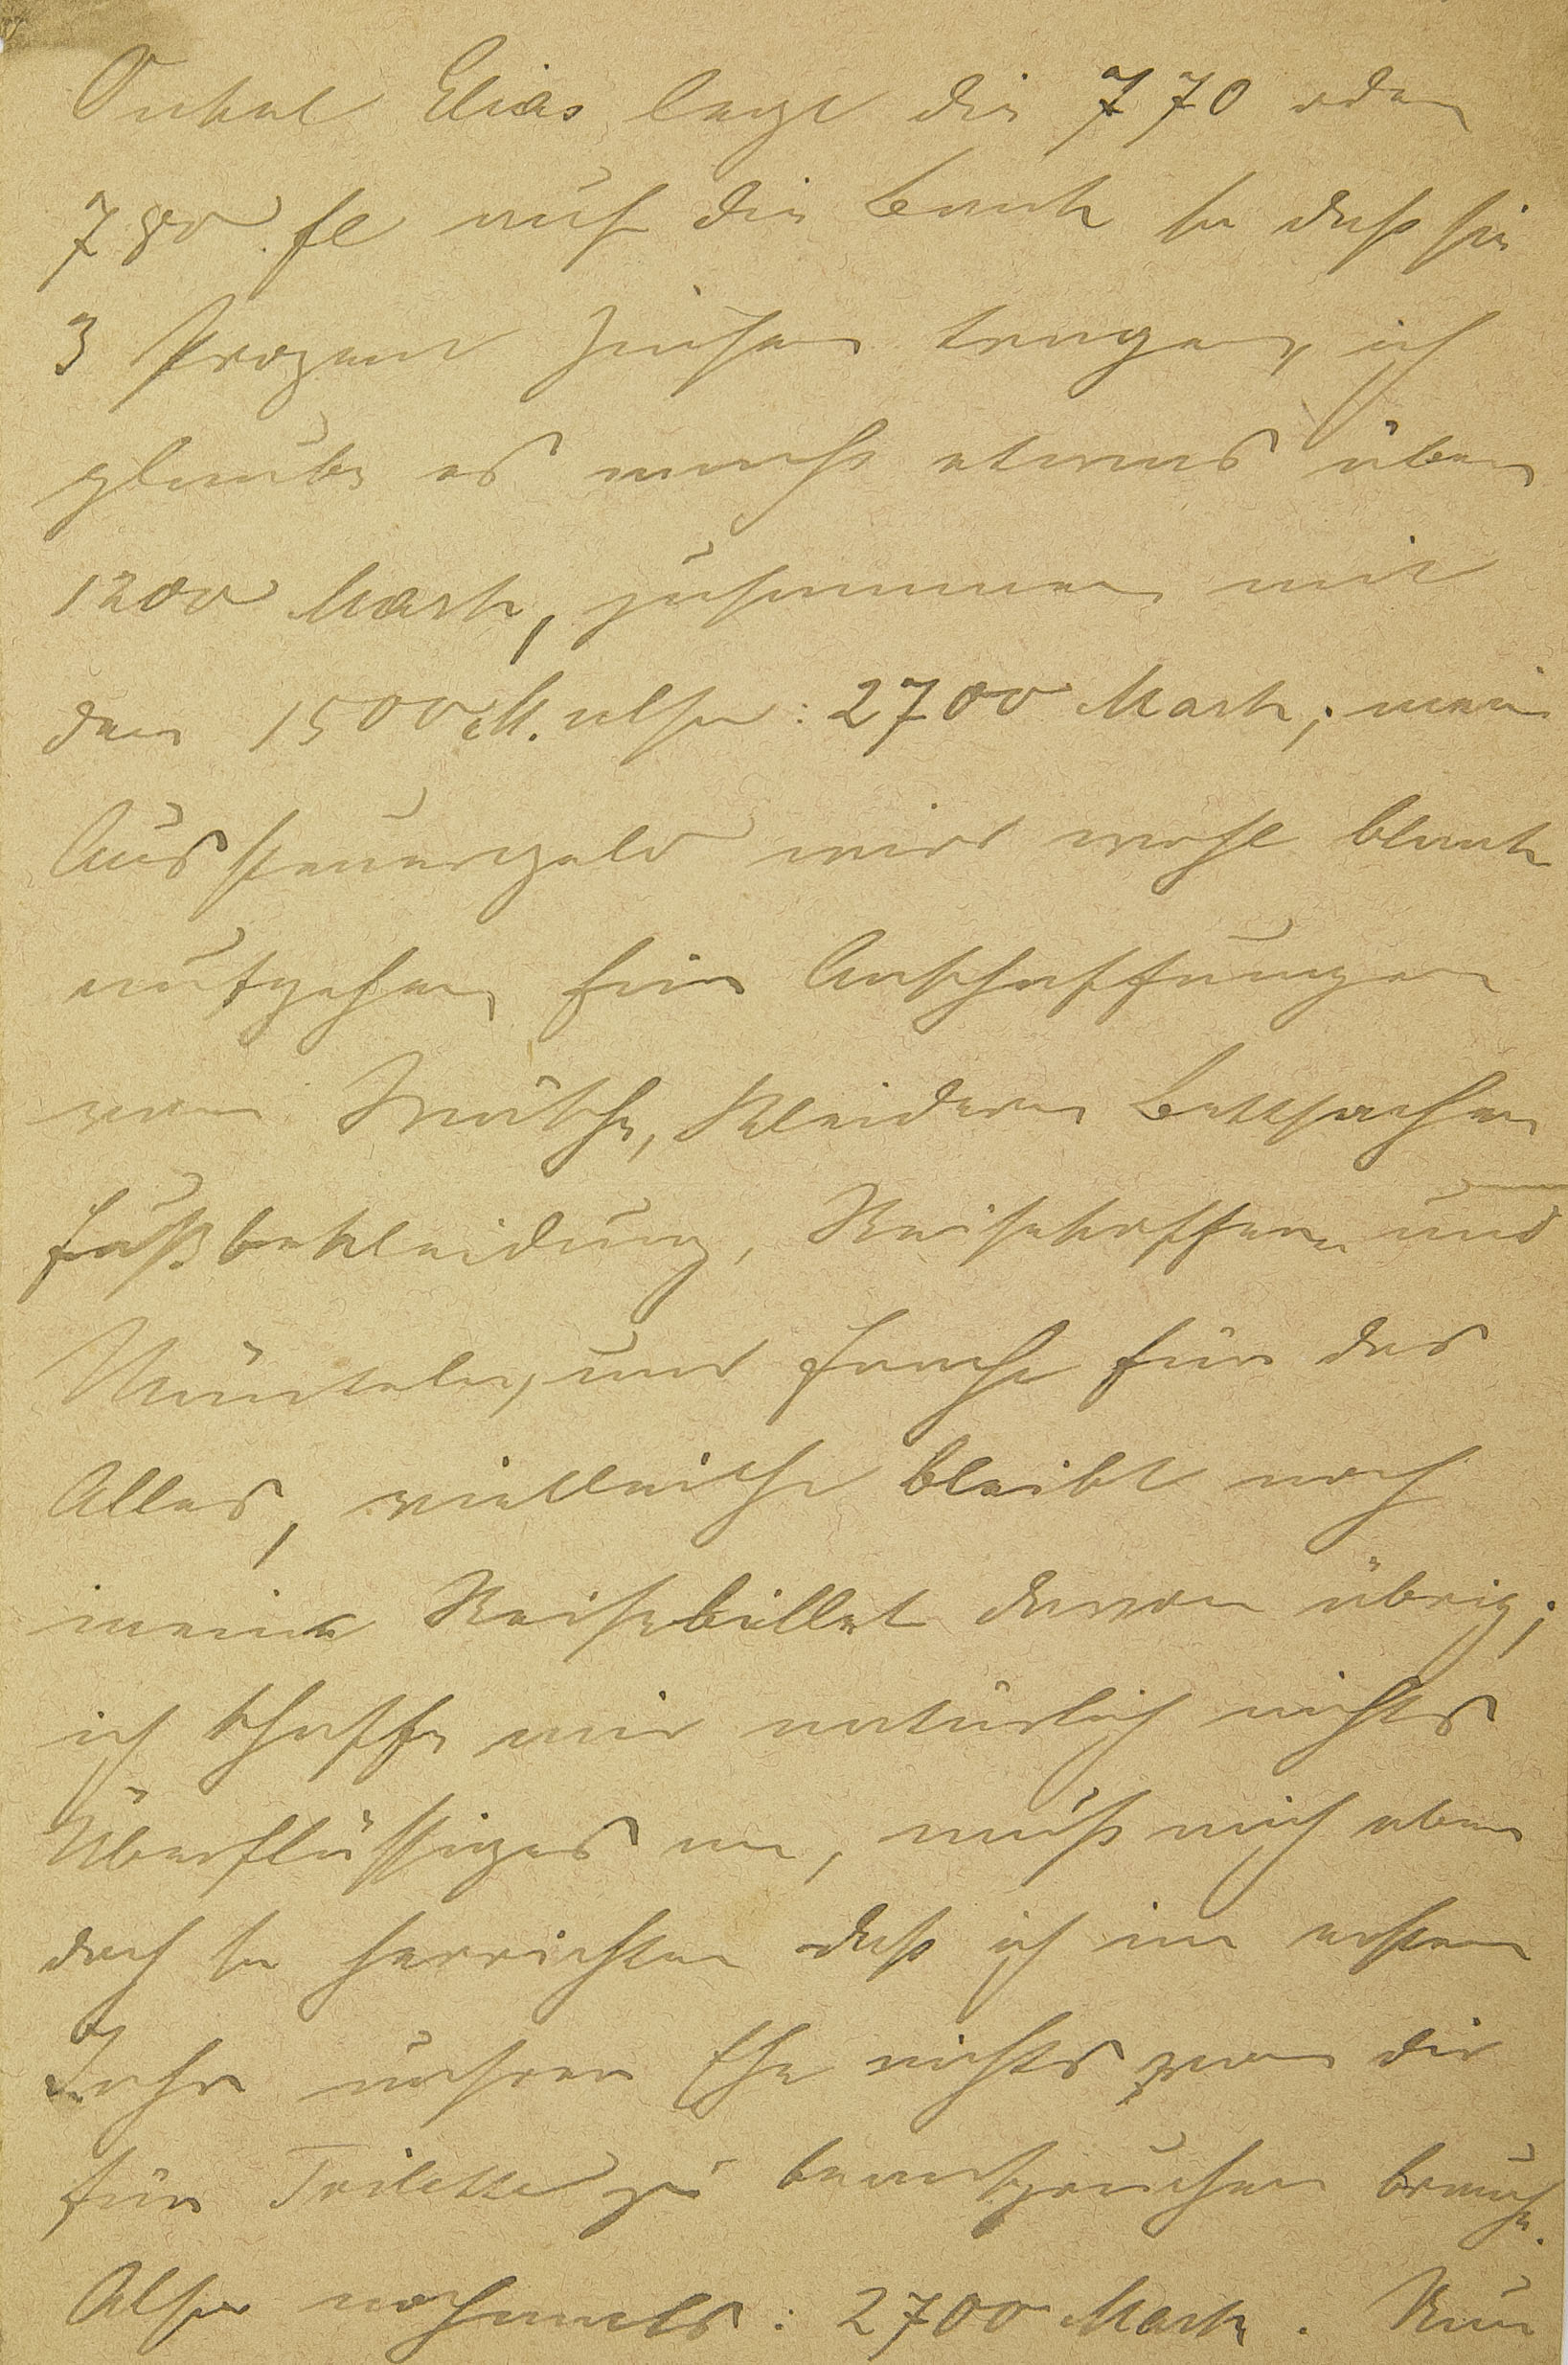 Onkel Elias legt die 770 oder
780 fl auf die Bank so daß sie
3 Prozent Zinsen tragen, ich
glaube es macht etwas über
1200 Mark, zusammen mit
den 1500 M. also: 2700 Mark; mein
Aussteuergeld wird wohl blank
aufgehen für Anschaffungen
von Wäsche, Kleidern Bettsachen
Fußbekleidung, Reisekoffern und
Mäntel, und Fracht für das
Alles, vielleicht bleibt noch
mein Reisebillet davon übrig;
ich schaffe mir natürlich nichts
Überflüssiges an, muß mich aber
doch so herrichten daß ich im ersten
Jahr unsrer Ehe nichts von dir
für Toilette zu beanspruchen brauche.
Also nochmals: 2700 Mark. Nun